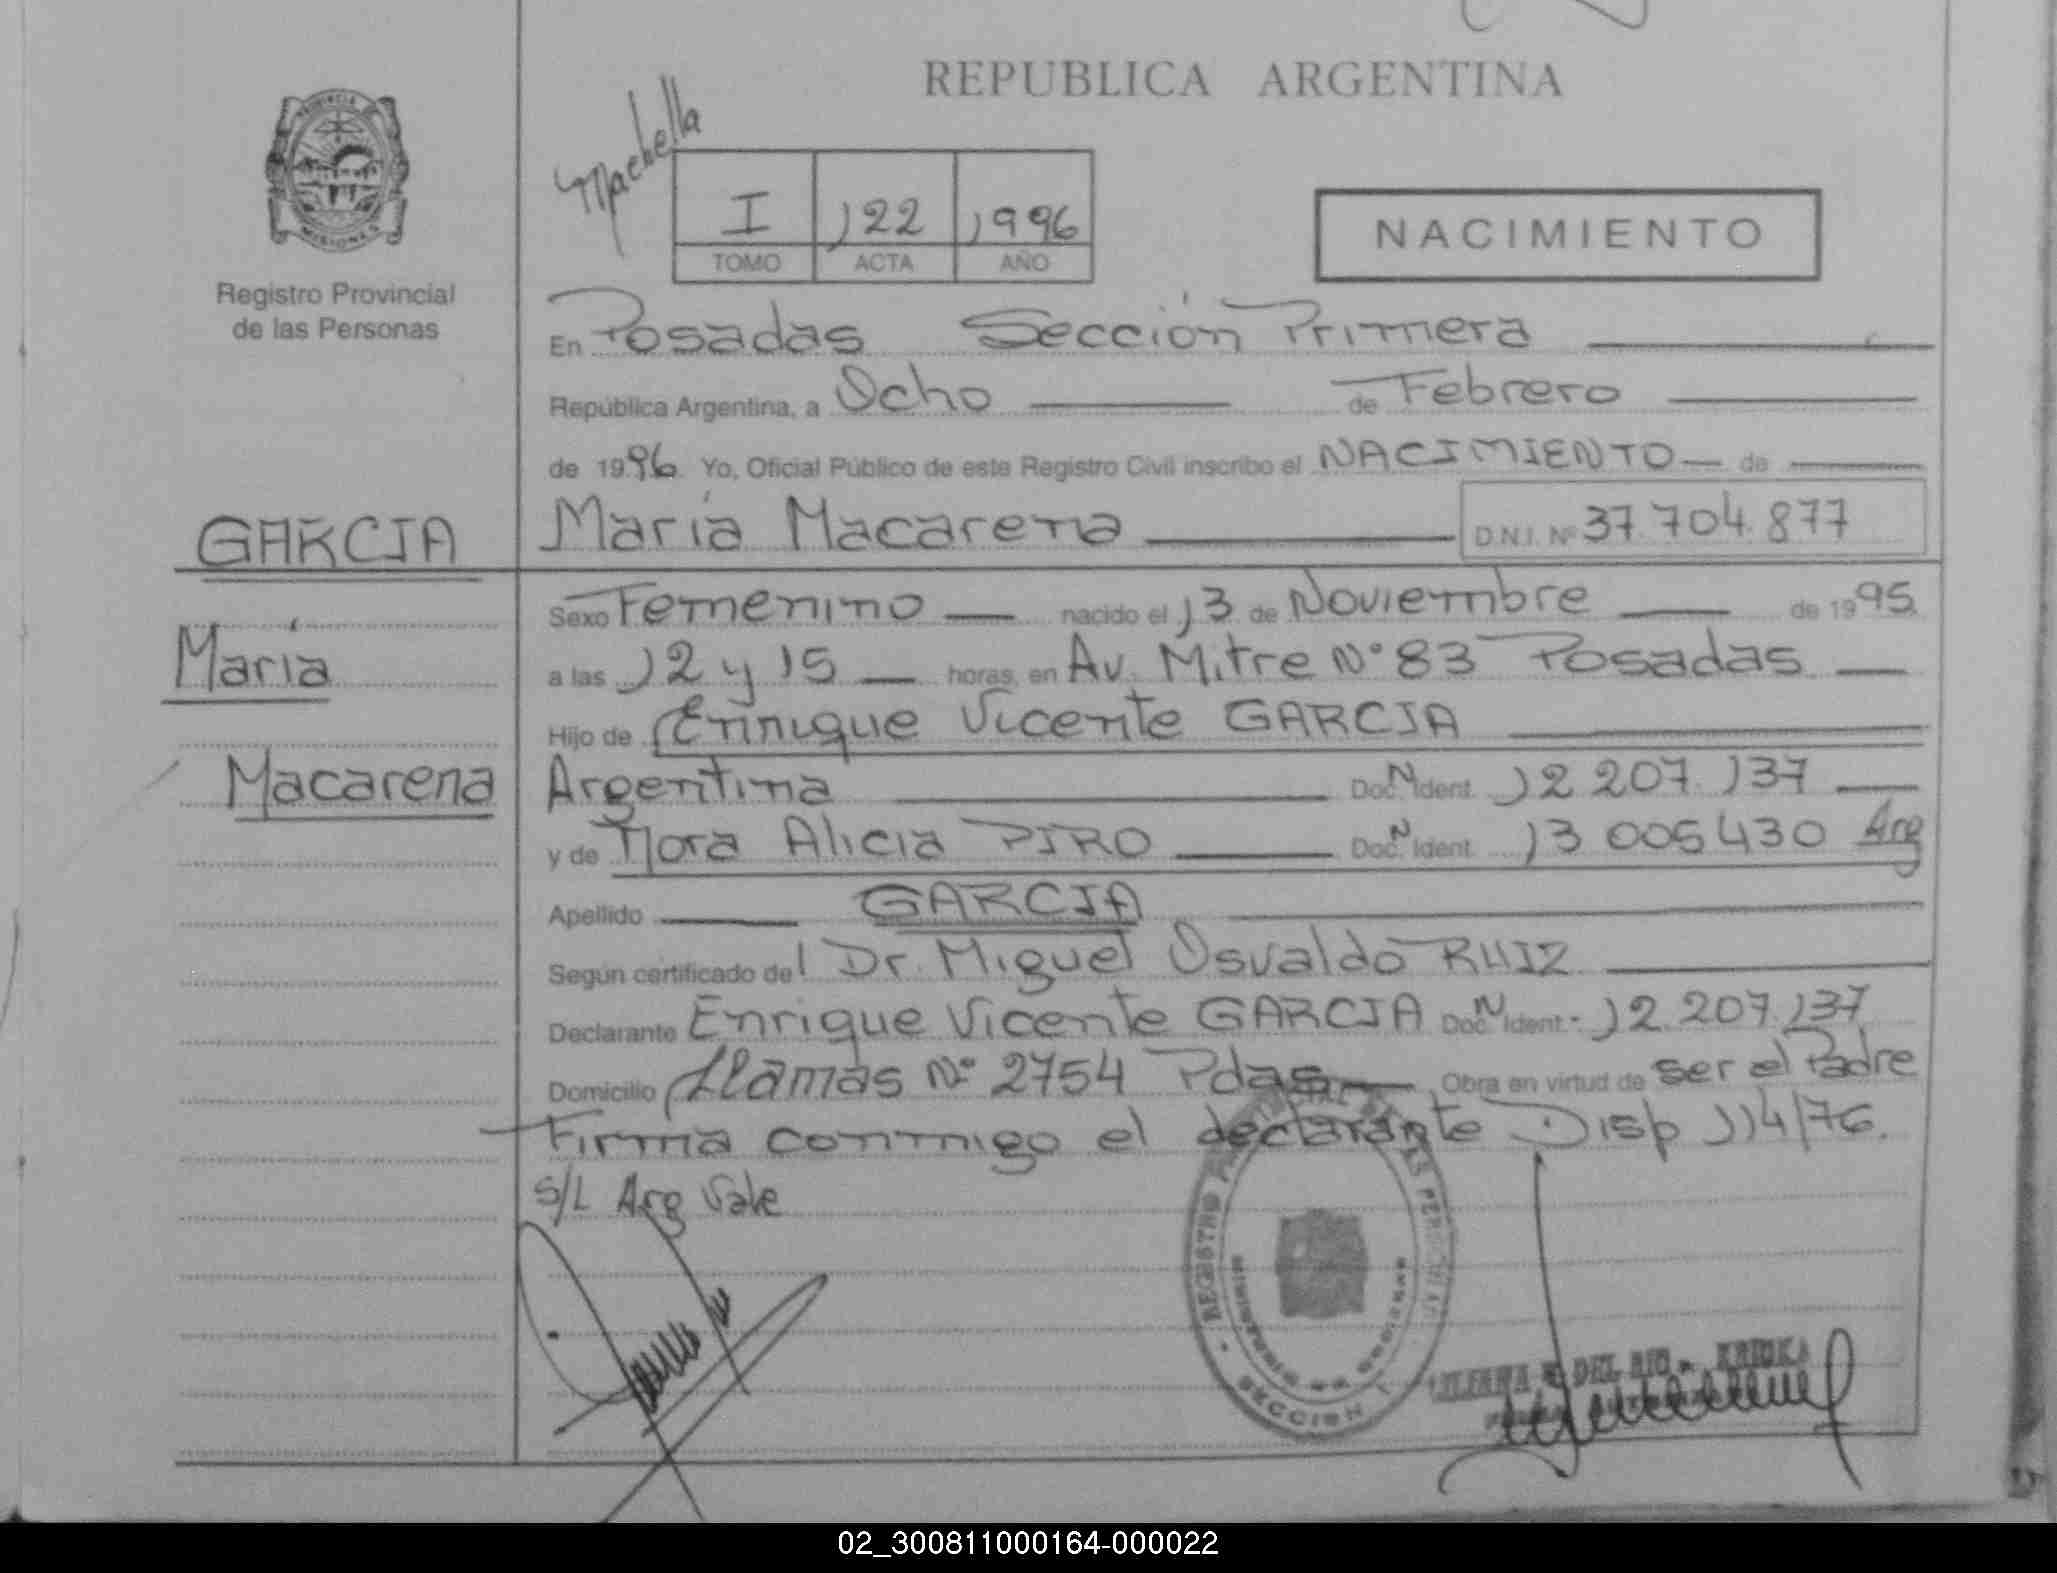 REPUBLICA ARGENTINA
PROVINCIA
MISIONES
Registro Provincial
de las Personas
Machella
I 122 1996
TOMO ACTA AÑO
NACIMIENTO
En Posadas Sección Primera
República Argentina, a Ocho de Febrero
de 1996. Yo, Oficial Público de este Registro Civil inscribo el NACIMIENTO de
GARCIA
María Macarena D.N.I. Nº 37.704.877
Sexo Femenino nacido el 13 de Noviembre de 1995.
María
a las 12 y 15 horas, en Av. Mitre Nº 83 Posadas
Hijo de Enrique Vicente GARCIA
Macarena
Argentina Doc. N Ident. 12 207.137
y de Nora Alicia PIRO Doc. N Ident. 13 005430 Arg
Apellido GARCIA
Según certificado del Dr. Miguel Osvaldo RUIZ
Declarante Enrique Vicente GARCIA Doc. N Ident. 12.207.137
Domicilio Llamas Nº 2754 Pdas Obra en virtud de ser el Padre
Firma conmigo el declarante Disp 114/76.
S/L Arg Vale
REGISTRO PERSONAS
SECCION 1
DEL RIO
02_300811000164-000022